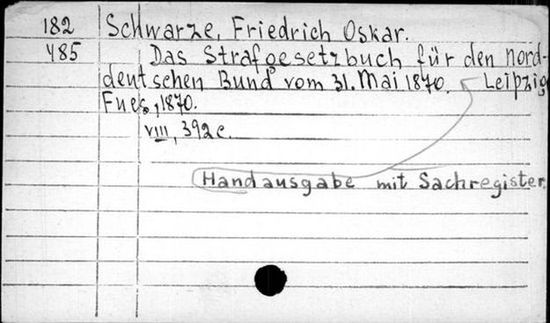 182 Schwarze, Friedrich Oskar.
485 Das Strafgesetzbuch für den nord-
deutschen Bund vom 31. Mai 1870. Leipzig
Fues, 1870.
VIII, 392 c.
Handausgabe mit Sachregister.